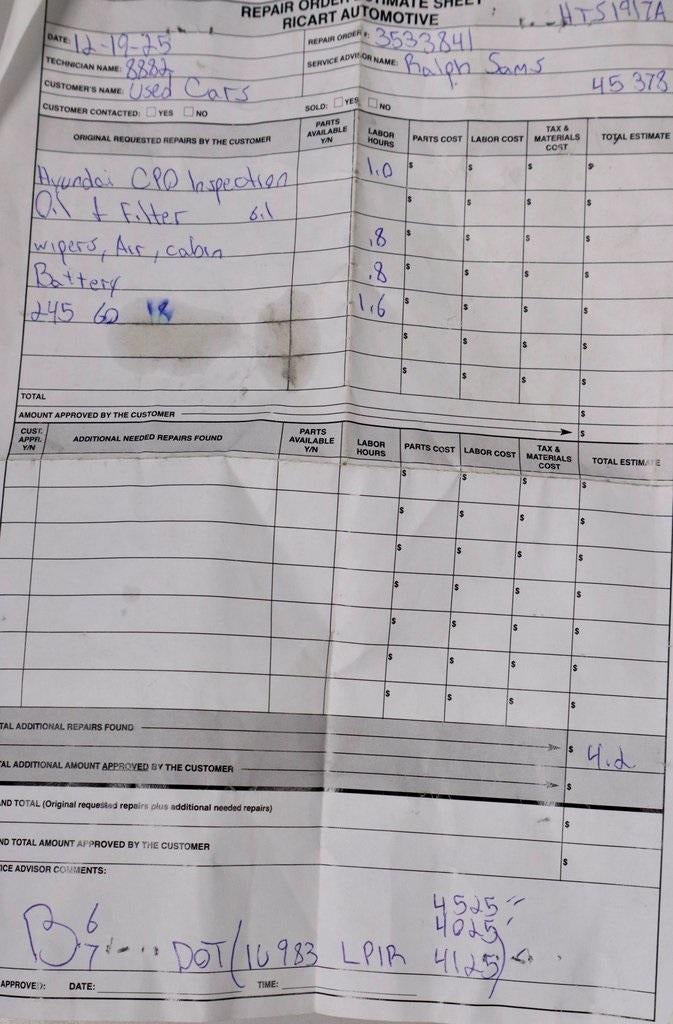 REPAIR ORDER ESTIMATE SHEET
RICART AUTOMOTIVE
HTS1917A
DATE: 12-19-25 REPAIR ORDER #: 3533841
TECHNICIAN NAME: 8882 SERVICE ADVISOR NAME: Ralph Sams
CUSTOMER'S NAME: Used Cars 45 378
CUSTOMER CONTACTED: YES NO SOLD: YES NO
ORIGINAL REQUESTED REPAIRS BY THE CUSTOMER PARTS AVAILABLE Y/N LABOR HOURS PARTS COST LABOR COST TAX & MATERIALS COST TOTAL ESTIMATE
Hyundai CPO Inspection 1.0 $ $ $ $
Oil & Filter 6.1 $ $ $ $
wipers, Air, cabin .8 $ $ $ $
Battery .8 $ $ $ $
245 60 18 1.6 $ $ $ $
$ $ $ $
$ $ $ $
TOTAL $
AMOUNT APPROVED BY THE CUSTOMER $
CUST. APPR. Y/N ADDITIONAL NEEDED REPAIRS FOUND PARTS AVAILABLE Y/N LABOR HOURS PARTS COST LABOR COST TAX & MATERIALS COST TOTAL ESTIMATE
$ $ $ $
$ $ $ $
$ $ $ $
$ $ $ $
$ $ $ $
$ $ $ $
$ $ $ $
TAL ADDITIONAL REPAIRS FOUND $ 4.2
TAL ADDITIONAL AMOUNT APPROVED BY THE CUSTOMER $
ND TOTAL (Original requested repairs plus additional needed repairs) $
ND TOTAL AMOUNT APPROVED BY THE CUSTOMER $
ICE ADVISOR COMMENTS:
4525
6 4025
B 7 DOT (1U 983 LPIR 4125)
APPROVED: DATE: TIME: